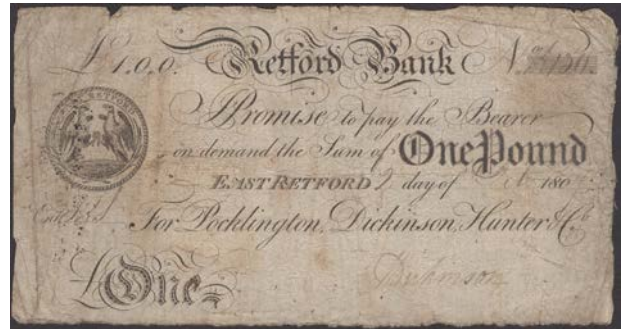 £1.0.0. Retford Bank No.
RETFORD
I Promise to pay the Bearer
on demand the Sum of One Pound
EAST RETFORD 2 day of 180
Ent. For Pocklington, Dickinson, Hunter & Co.
£One
Dickinson